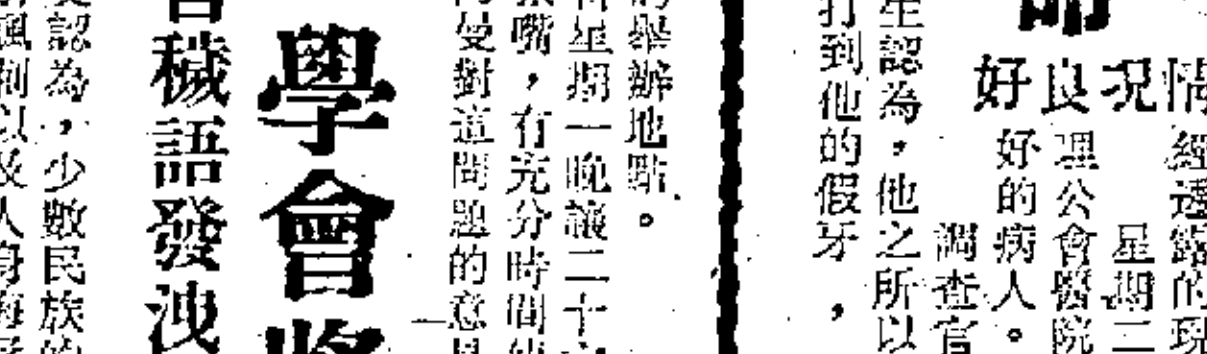 情
況
良
好
經透露的現
星期二
理公會醫院
好的病人。
調查官
生認為，他之所以
打到他的假牙，
的舉辦地點。
星期一晚議二十
嘴，有充分時間
曼對這問題的意見
學會將
穢語發洩
認為，少數民族的
諷刺以及人身侮